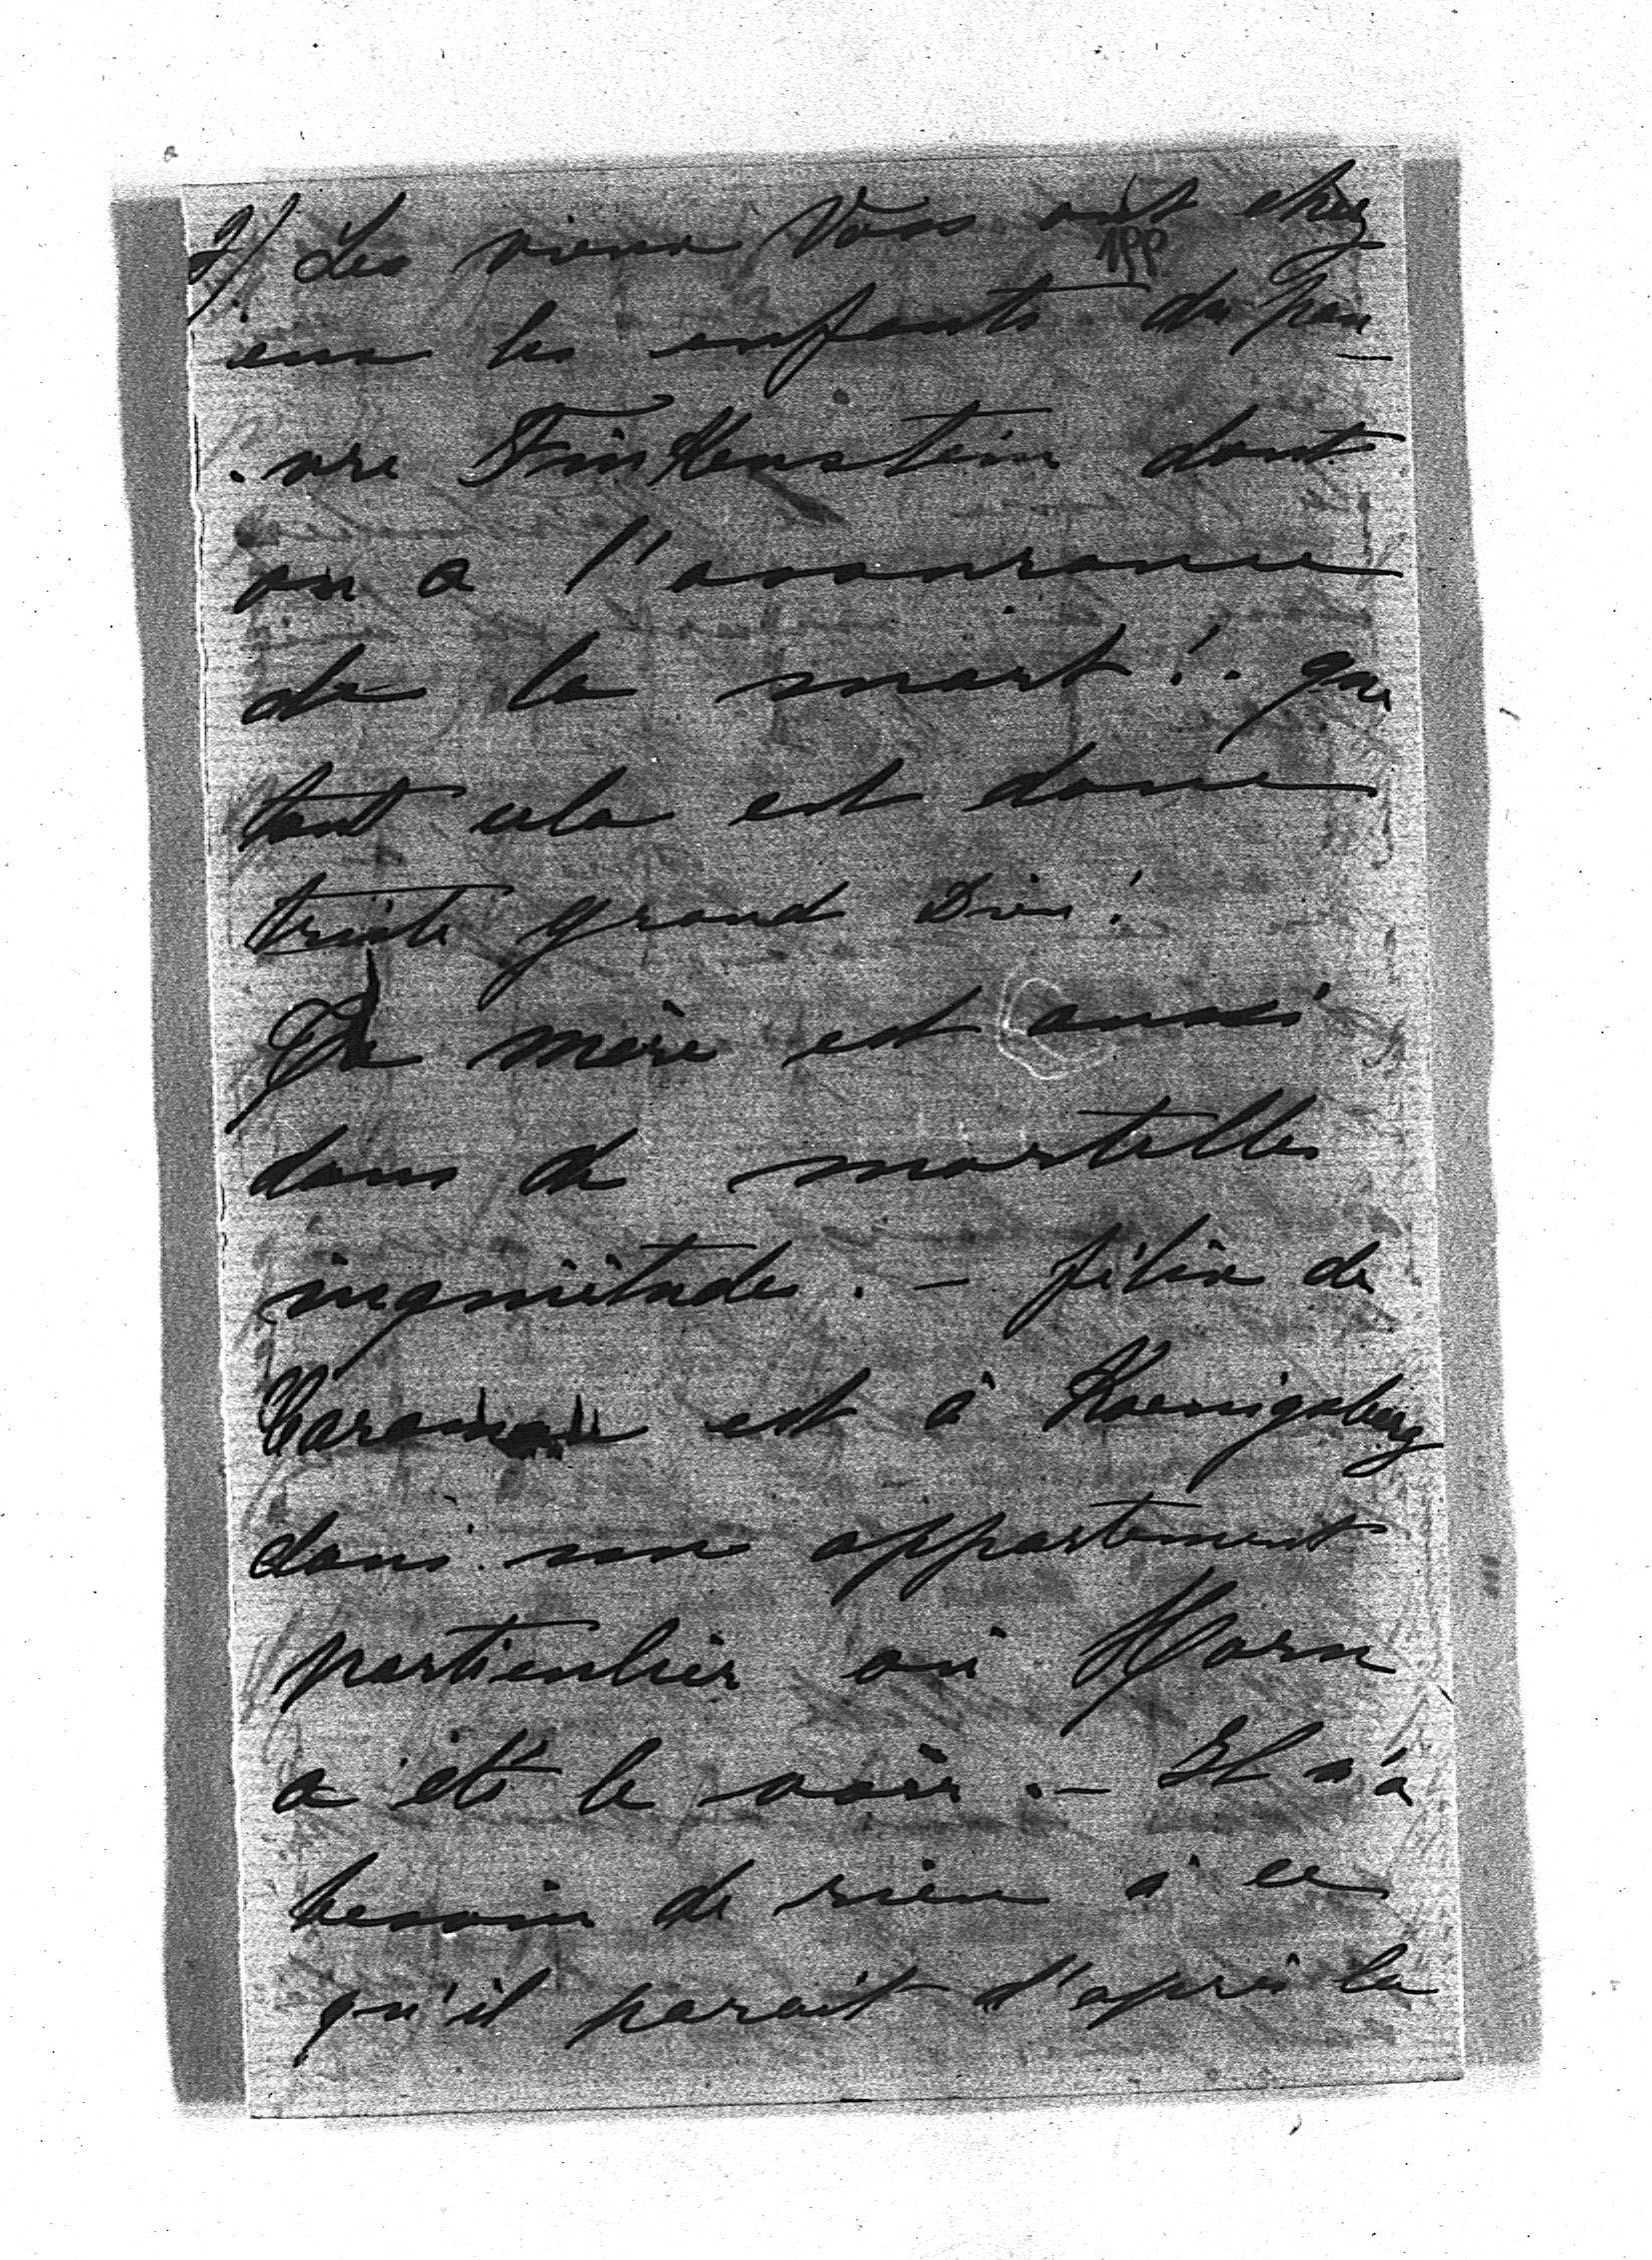 2). Les vieux Voss ont chez
eux les enfants du pau-
vre Finkenstein dont
on a l'assurance
de la mort ! que
tout cela est donc
triste grand Dieu !
Sa mère est aussi
dans de mortelles
inquiétudes. – félix de
Caraman est à Koenigsberg
dans un appartement
particulier où Horn
a été le voir. – Il n'a
besoin de rien à ce
qu'il parait d'après la